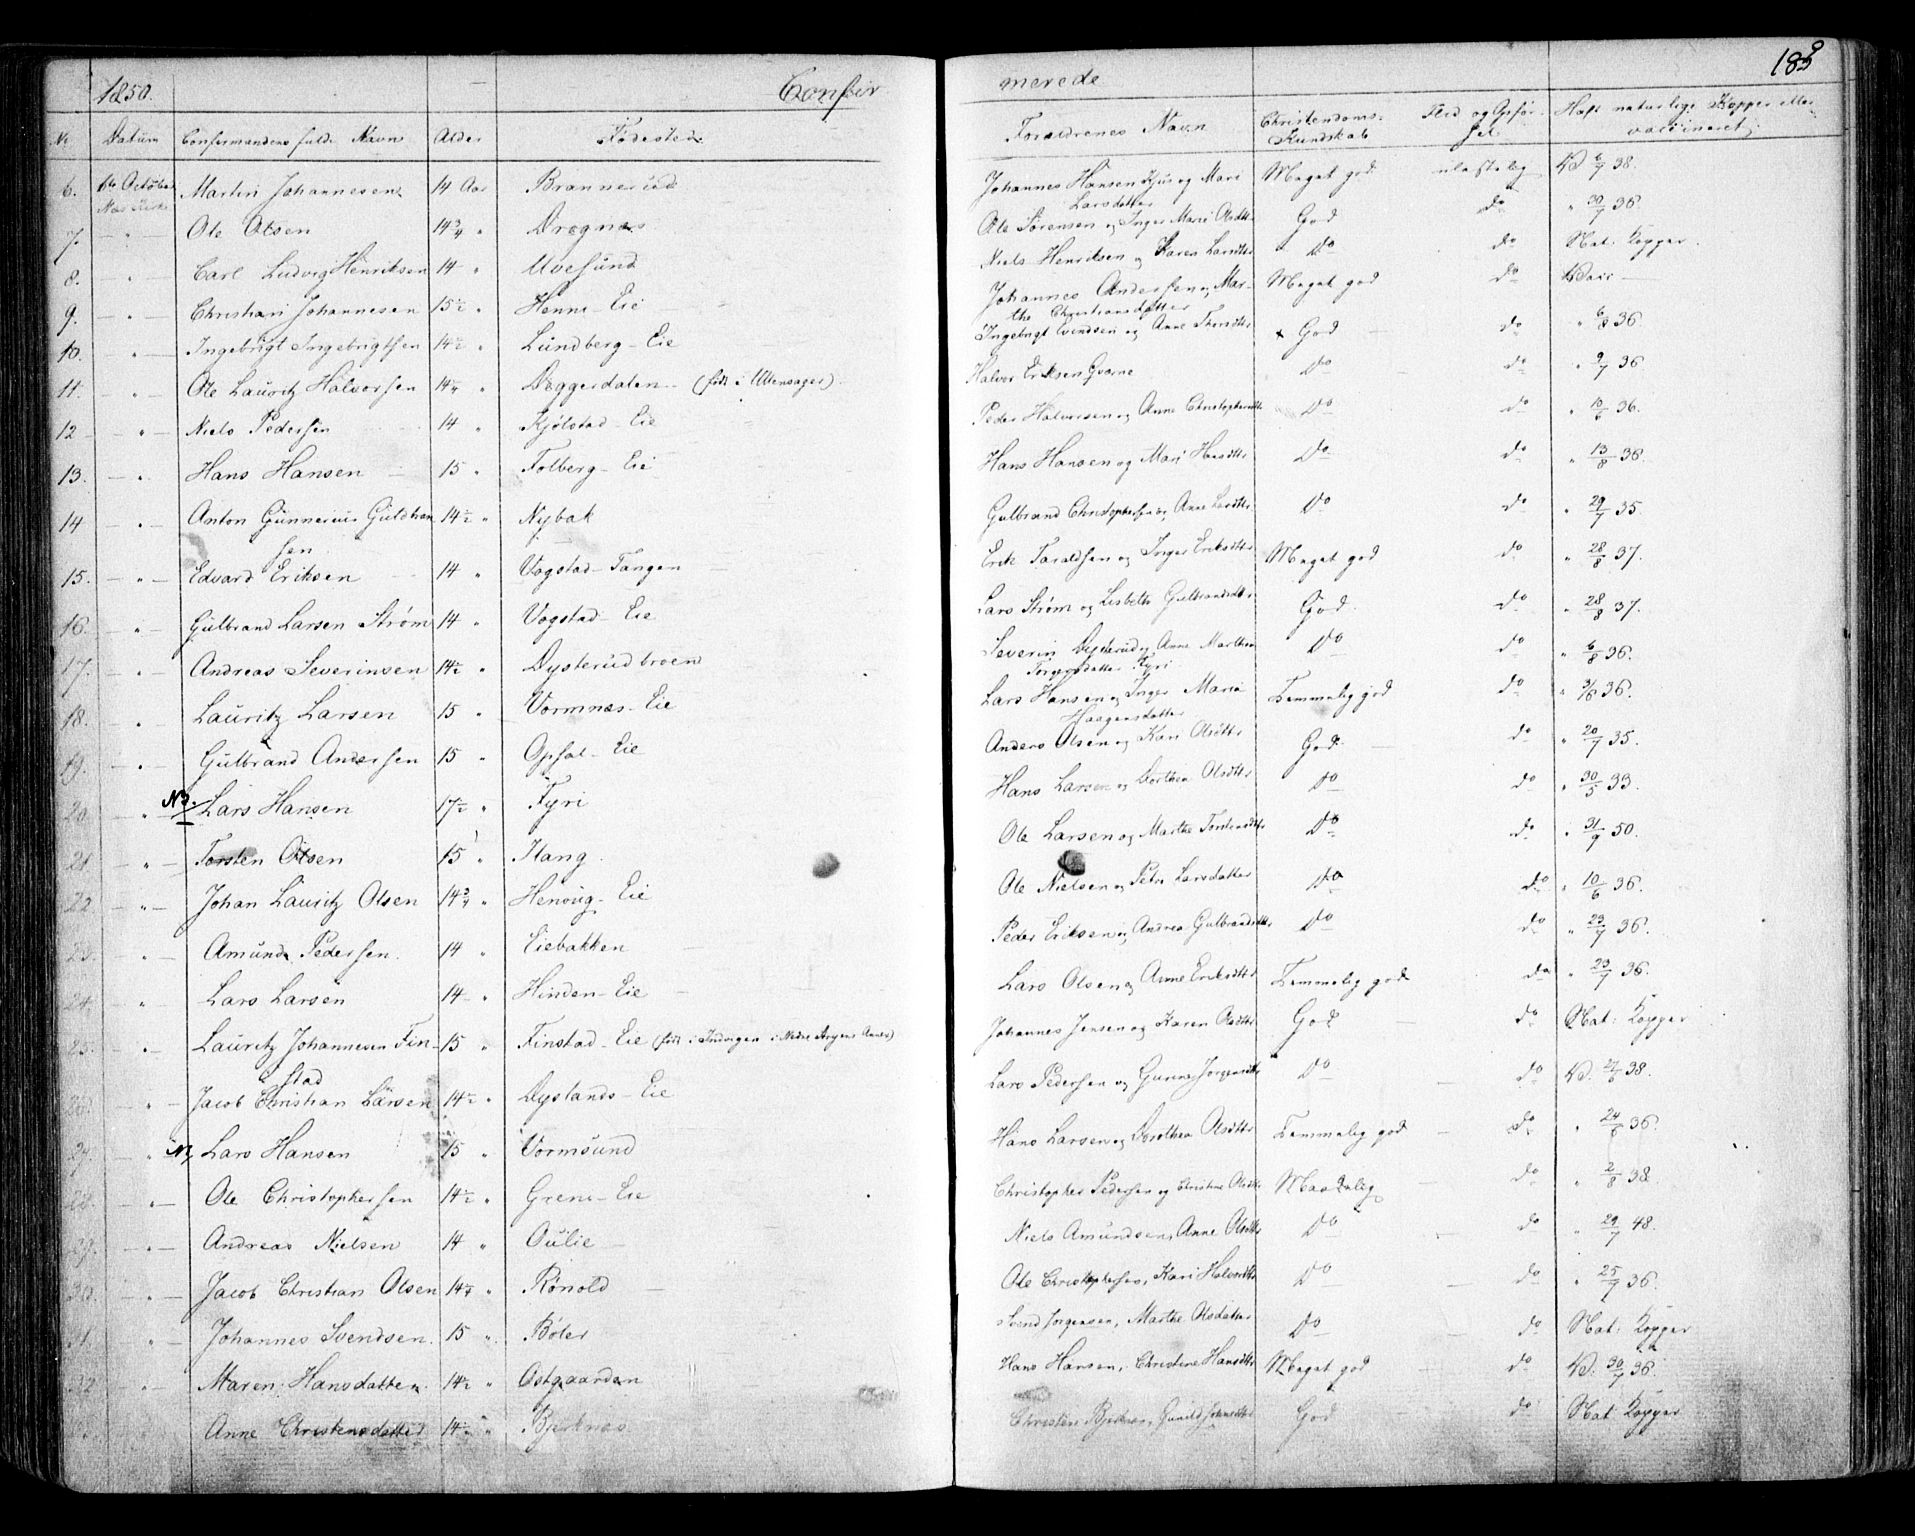 1850. Confir merede 183
No Datum Confirmandens fulde Navn Alder Fødested Forældrenes Navn Christendoms- Flid og Opfør- Haft naturlige Kopper eller
Kundskab sel vaccineret
6. 6te October Martin Johannesen 14 Aar Brannerud Johannes Hansen Kjus og Mari Meget god ulastelig Vd. 6/7 38.
Næs Kirke Larsdatter
7. " Ole Olsen 14 3/4 " Dragnæs Ole Sørensen og Inger Marie Olsdtr God do " 30/7 36.
8. " Carl Ludvig Henriksen 14 " Uvesund Niels Henriksen og Karen Larsdtr Do do Nat: Kopper.
9. " Christian Johannesen 15 1/2 " Henni-Eie Johannes Andersen og Mar- Meget god do Vacc
the Christiansdatter
10. " Ingebrigt Ingebrigtsen 14 1/2 " Lundberg-Eie Ingebrigt Evindsen og Anne Thorsdtr God do " 6/8 36.
11. " Ole Lauritz Halvorsen 14 1/4 " Daggerdalen (født i Ullensager). Halvor Eriksen Qværne Do do " 9/7 36
12 " Niels Pedersen 14 " Kjølstad-Eie Peder Halvorsen og Anne Christophersdtr Do do " 10/6 36.
13. " Hans Hansen 15 " Folberg-Eie Hans Hansen og Mari Hansdtr Do do " 13/8 36.
14 " Anton Gunnerius Guldbran 14 1/2 " Nybak Gulbrand Christophersen og Anne Larsdtr Do do " 29/7 35.
sen
15. " Edvard Eriksen 14 " Vogstad-Tangen Erik Taraldsen og Inger Eriksdtr Meget god do " 28/8 37.
16. " Gulbrand Larsen Strøm 14 " Vogstad-Eie Lars Strøm og Lisbeth Gulbrandsdtr God do " 28/8 37.
17. " Andreas Severinsen 14 1/2 " Dysterudbroen Severin Dysterud og Anne Marthea Do do " 6/8 36.
Torgersdatter Fyri
18. " Lauritz Larsen 15 " Vormnæs-Eie Lars Hansen og Inger Maria Temmelig god do " 3/8 36.
Haagensdatter
19. " Gulbrand Andersen 15 " Opsal-Eie Anders Olsen og Kari Olsdtr God do " 20/7 35.
20. " NB. Lars Hansen 17 1/2 " Fyri Hans Larsen og Dorthea Olsdtr Do do " 30/5 33.
21 " Torsten Olsen 15 " Hang. Ole Larsen og Marthe Torstensdtr Do do " 31/7 50.
22 " Johan Lauritz Olsen 14 3/4 " Henoug-Eie Ole Nielsen og Petri Larsdatter Do do " 10/6 36.
23. " Amund Pedersen. 14 " Eiebakken Peder Eriksen og Andrea Gulbrandsdtr Do do " 23/7 36.
24. " Lars Larsen 14 " Hinden-Eie Lars Olsen og Anne Eriksdtr Temmelig god do " 23/7 36.
25. " Lauritz Johannesen Fin- 15 " Finstad-Eie (født i Indvigen i Nedre Aryens Annex) Johannes Jensen og Karen Olsdtr God do Nat: Kopper
stad
26. " Jacob Christian Larsen 14 1/2 " Dystands-Eie Lars Pedersen og Gunnor Jørgensdtr Do do Vd. 27/6 38.
27. " N, Lars Hansen 15 " Vormsund Hans Larsen og Dorothea Olsdtr Temmelig god do " 24/6 36.
28. " Ole Christophersen 14 1/2 " Greni-Eie Christopher Pedersen og Christine Olsdtr Maadelig do " 2/8 38.
29. " Andreas Nielsen 14 " Oulie Niels Amundsen, Anne Olsdtr Do do " 29/7 48.
30. " Jacob Christian Olsen 14 1/4 " Rønold Ole Christophersen, Kari Halvorsdtr Do do " 25/7 36.
31. " Johannes Svendsen. 15 " Bøler Svend Jørgensen, Marthe Olsdatter Do do Nat: Kopper
32 " Maren Hansdatter. 14 1/2 " Ostgaarden Hans Hansen, Christine Hansdtr Meget god do Vd. 30/7 36.
Anne Christensdatter 14 1/2 " Bjerknæs Christen Bjerknæs, Gunild Johnsdtr God do Nat: Kopper